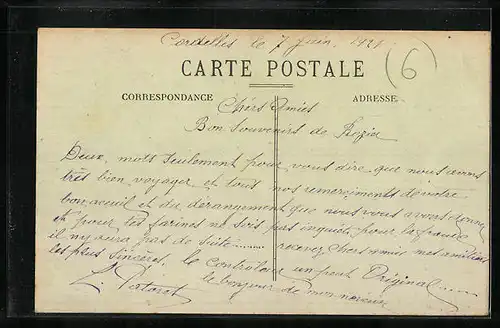 Cordelles le 7 Juin 1921
6
CARTE POSTALE
CORRESPONDANCE
ADRESSE
Chers Amies
Bon Souvenirs de
Deux mots seulement pour vous dire que nous avons
très bien voyager et tous nos remerciments de votre
bon acueil et du dérangement que nous vous avons donner
et pour les farines ne sois pas inquiet pour la
il ny aura pas de suite........ recevez chers amis nos amitiers
les plus sinceres. le un peut Original......
le bonjour de mon
L.